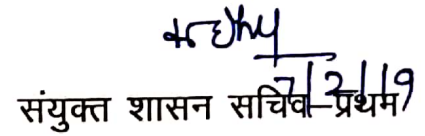 7/2/19
संयुक्त शासन सचिव–प्रथम